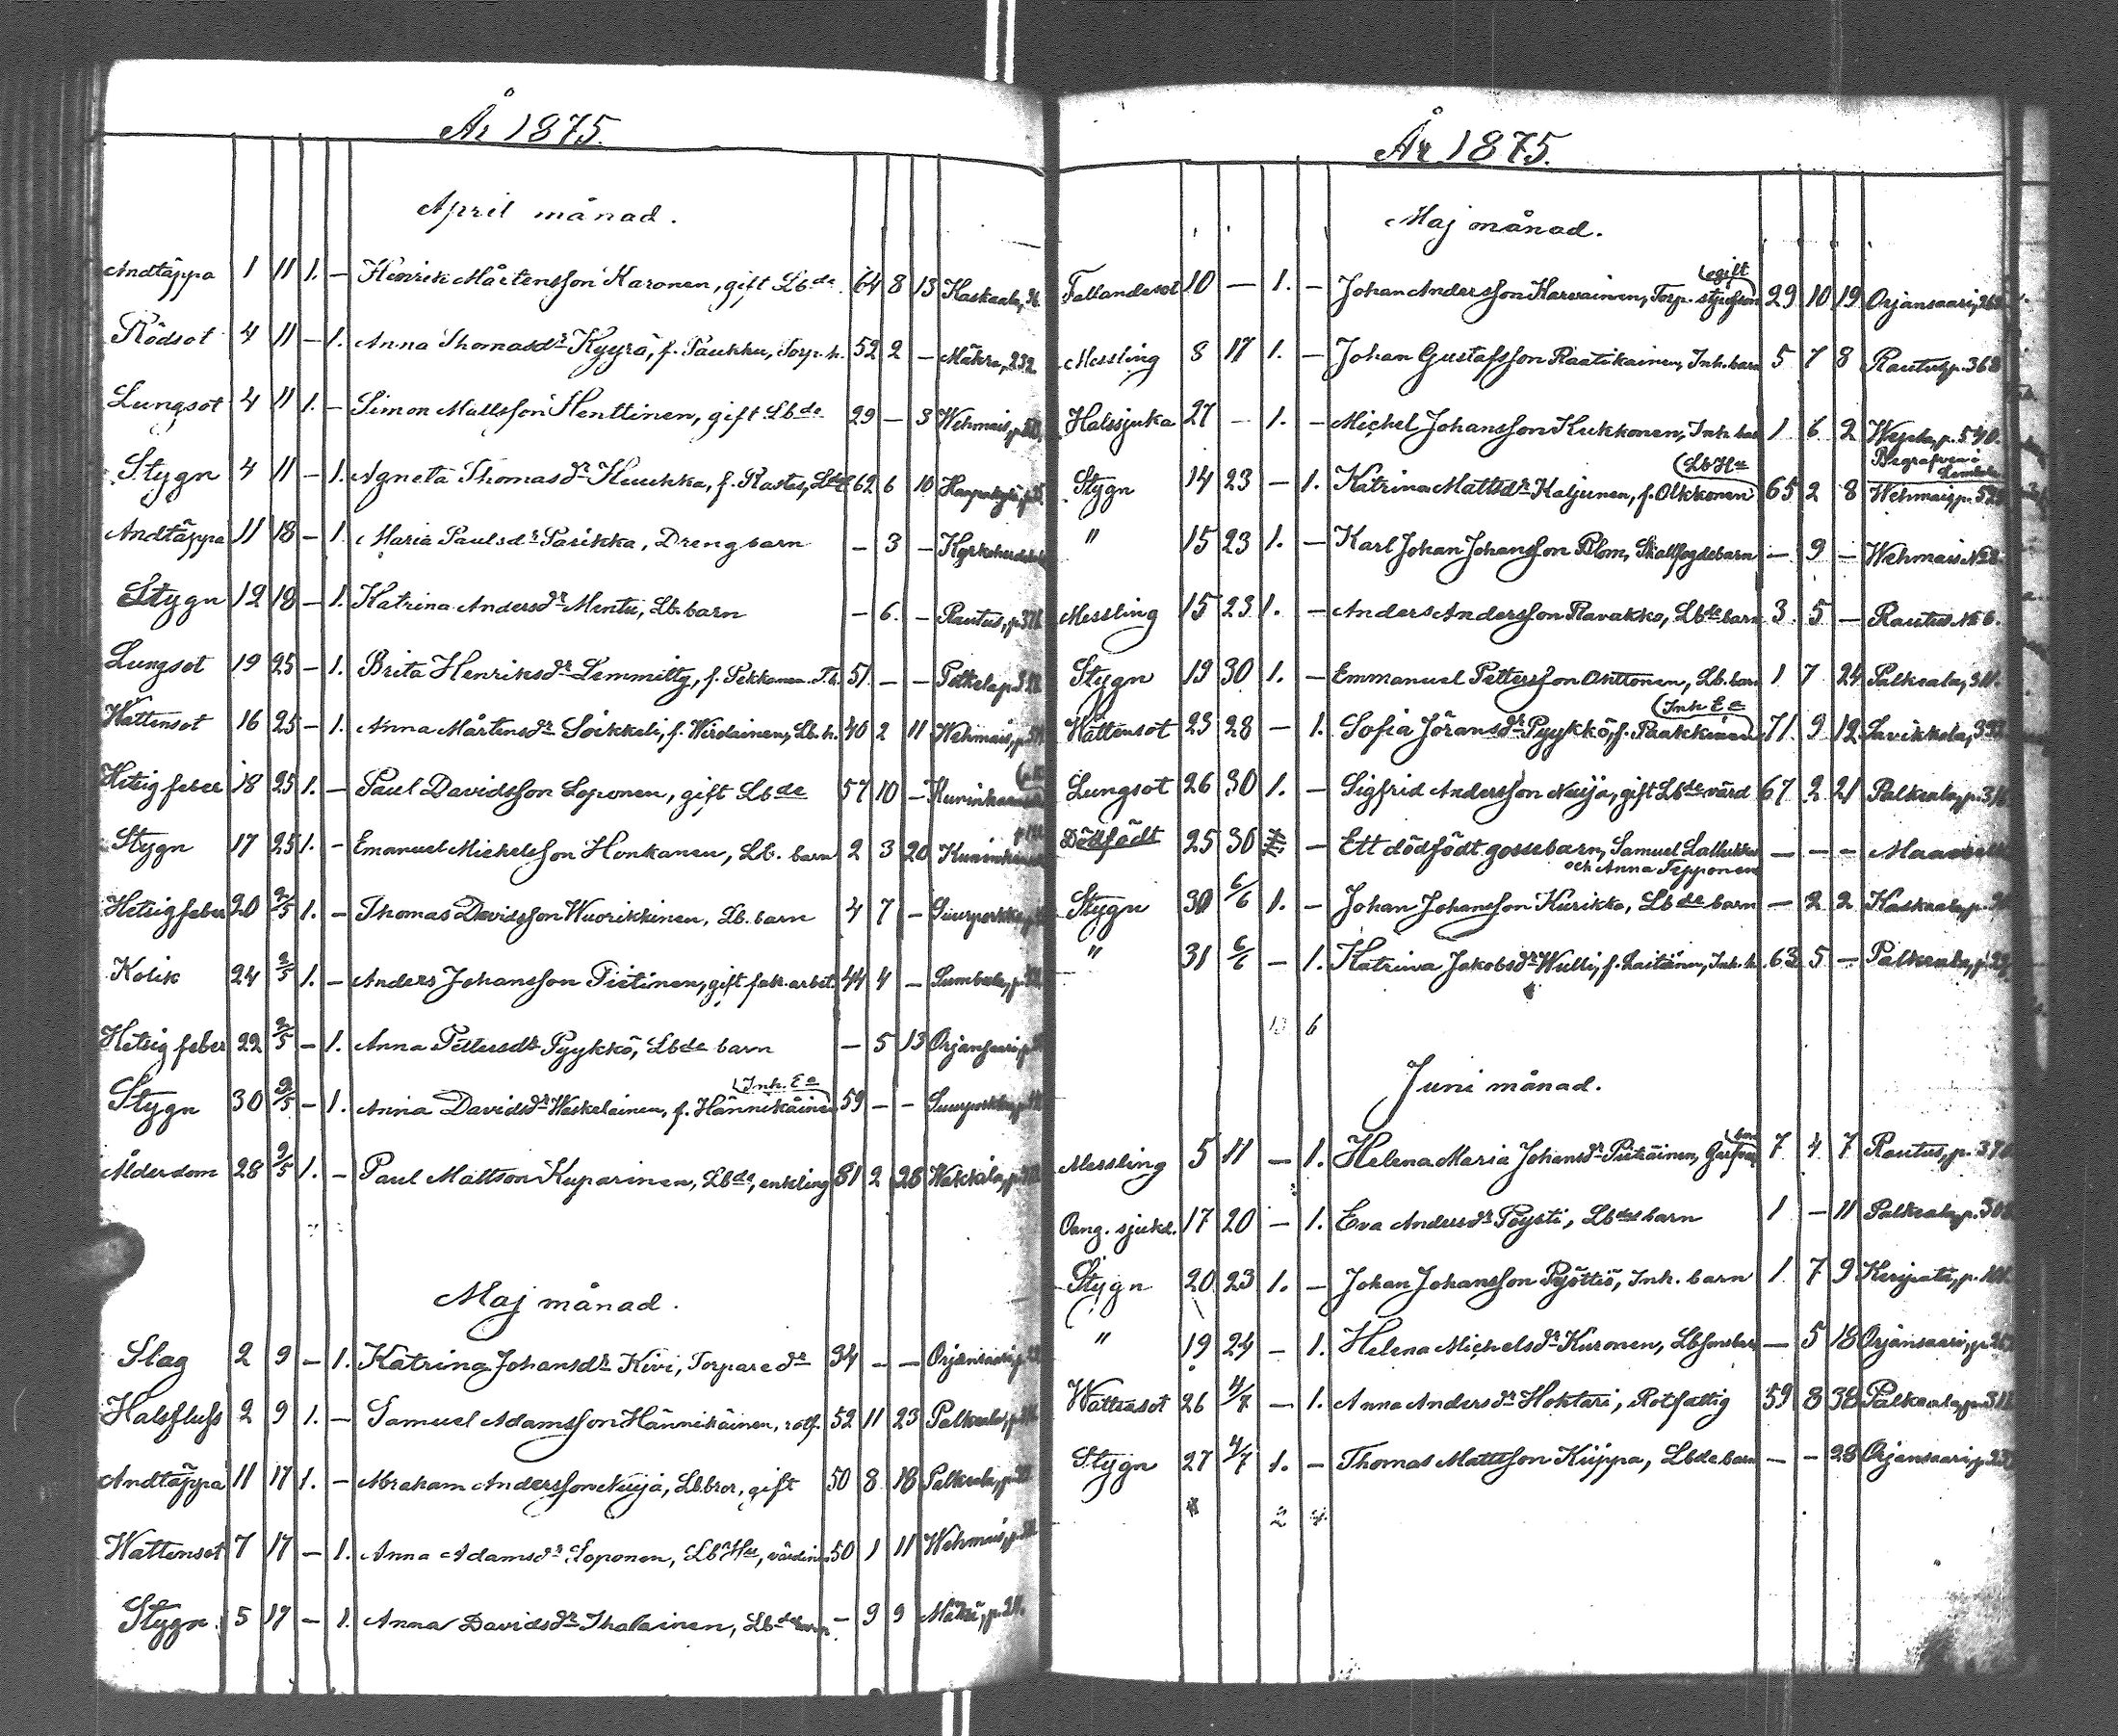 År 1875.
April månad.
Andtäppa 1 11 1. – Henrik Mårtensson Karonen, gift Lbde 64 8 13 Kaskaala,
Rödsot 4 11 – 1. Anna Thomasdr Kyyrä, f. Paukku, Torp. h. 52 2 – Mäkrä, 232
Lungsot 4 11 1. – Simon Mattsson Henttinen, gift Lbde 29 – 3 Wehmais, p.
Stygn 4 11 – 1. Agneta Thomasdr Kuukka, f. Rastas, 62 6 10
Andtäppa 11 18 – 1. Maria Paulsdr Parikka, Dreng barn – 3 –
Stygn 12 18 – 1. Katrina Andersdr Mentu, Lb. barn – 6. – Rautus, p.
Lungsot 19 25 – 1. Brita Henriksdr Lemmitty, f. Pekkanen. T.h. 51 – – Potkela p.
Wattensot 16 25 – 1. Anna Mårtensdr Soikkeli, f. Wirolainen, Lb. h. 40 2 11 Wehmais, p.
Hetsig feber 18 25 1. – Paul Davidsson Loponen, gift Lbde 57 10 –
Stygn 17 25 1. – Emanuel Michelsson Honkanen, Lb. barn 2 3 20
Hetsig feber 20 2/5 1. – Thomas Davidsson Wuorikkinen, Lb. barn 4 7 – Suurporkku
Kolik 24 2/5 1. – Anders Johansson Tietinen, gift fab. arbet. 44 4 – Sumbula, p.
Hetsig feber 22 2/5 – 1. Anna Pettersdr Pyykkö, Lbde barn – 5 13 Orjansaari p.
Stygn 30 2/5 – 1. Anna Davidsdr Weskelainen, f. Hännikäinen (Inh. Ea 59 – – Suurporkku
Ålderdom 28 2/5 1. – Paul Mattson Kuparinen, Lbde, enkling 81 2 28 Wakkila, p.
Maj månad.
Slag 2 9 – 1. Katrina Johansdr Kivi, Torpare dr 34 – – Orjansaari, p.
Halsfluss 2 9 1. – Samuel Adamsson Hännikäinen, rotf. 52 11 23 Palkeala, p.
Andtäppa 11 17 1. – Abraham Andersson Nuija, Lb. bror, gift 50 8 18 Palkeala, p.
Wattensot 7 17 – 1. Anna Adamsdr Loponen, Lb Hu, värdinna 50 1 11 Wehmais, p.
Stygn 5 17 – 1. Anna Davidsdr Ihalainen, Lbde barn – 9 9 p. 211.
År 1875.
Maj månad.
Fallandesot 10 – 1. – Johan Andersson Karvainen, Torp. styfson (gift 29 10 19 Orjansaari,
Messling 8 17 1. – Johan Gustafsson Raatikainen, Inh. barn 5 7 8 Rautus p. 368
Halssjuka 27 – 1. – Michel Johansson Kukkonen, Inh. bar 1 6 2 p. 540.
Begrafven i
Stygn 14 23 – 1. Katrina Mattsdr Kaljunen, f. Olkkonen (Lb Ha 65 2 8 Wehmais, p.
" 15 23 1. – Karl Johan Johansson Blom, Skallfogdebarn – 9 – Wehmais №2.
Messling 15 23 1. – Anders Andersson Ravakko, Lbde barn 3. 5 – Rautus № 6.
Stygn 19 30 1. – Emmanuel Pettersson Onttonen, Lb. barn 1 7 24 Palkeala, 311.
Wattensot 23 28 – 1. Sofia Jöransdr Pyykkö, f. Paakkinen (Inh Ea 71 9 12 Savikkola,
Lungsot 26 30 1. – Sigfrid Andersson Nuija, gift Lbde värd 67 2 21 Palkeala, p. 316
Dödfödt 25 30 – Ett dödfödt gossebarn, Samuel Lallukka
och Anna Tepponen – – –
Stygn 30 6/6 1. – Johan Johansson Kurikka, Lbde barn – 2 2 Kaskaala, p.
" 31 6/6 – 1. Katrina Jakobsdr Wulli, f. Laitinen, Inh. h. 63 5 – Palkeala, p.
6
Juni månad.
Messling 5 11 – 1. Helena Maria Johansdr Pietiäinen, 7 4 7 Rautus, p.
Oang. sjukd. 17 20 – 1. Eva Andersdr Pöysti, Lbdes barn 1 – 11 Palkeala p.
Stygn 20 23 1. – Johan Johansson Pyöttiö, Inh. barn 1 7 9 p.
" 19 24 – 1. Helena Michelsdr Kuronen, – 5 18 Orjansaari, p.
Wattusot 26 4/7 – 1. Anna Andersdr Hoktari, Rotfattig 59 8 Palkeala, p. 316
Stygn 27 4/7 1. – Thomas Mattsson Kiippa, Lbde barn – – 28 Orjansaari, p.
2 4.